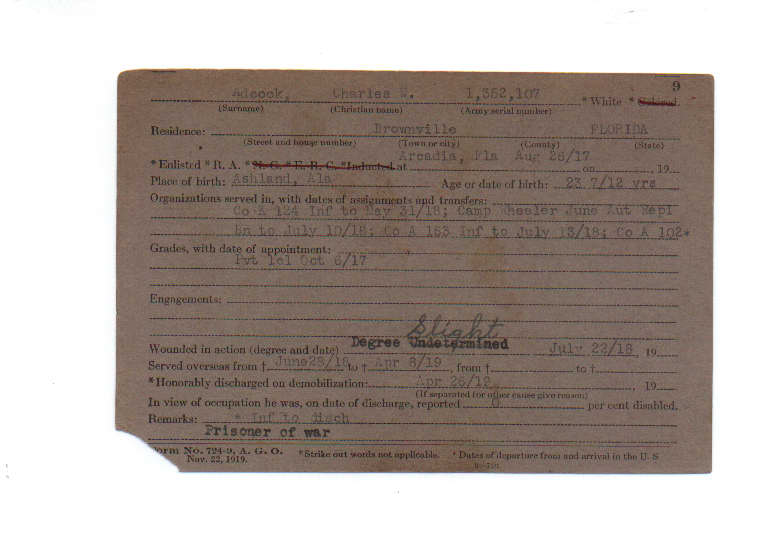 9
Adcock, Charles W. 1,352,107 * White * Colored.
(Surname) (Christian name) (Army serial number)
Residence: Brownville FLORIDA
(Street and house number) (Town or city) (County) (State)
Arcadia, Fla Aug 26/17
* Enlisted * R. A. * N. G. * E. R. C. * Inducted at on , 19
Place of birth: Ashland, Ala Age or date of birth: 23 7/12 yrs
Organizations served in, with dates of assignments and transfers:
Co A 124 Inf to May 31/18; Camp Wheeler June Aut Repl
Bn to July 10/18; Co A 153 Inf to July 13/18; Co A 102*
Grades, with date of appointment:
Pvt 1cl Oct 6/17
Engagements:
Slight
Wounded in action (degree and date) Degree Undetermined July 22/18 , 19
Served overseas from † June 28/18 to † Apr 8/19 , from † to †
* Honorably discharged on demobilization: Apr 26/19 , 19
(If separated for other cause give reason)
In view of occupation he was, on date of discharge, reported 0 per cent disabled.
Remarks: * Inf to disch
Prisoner of war
Form No. 724-9, A. G. O. * Strike out words not applicable. † Dates of departure from and arrival in the U. S
Nov. 22, 1919.